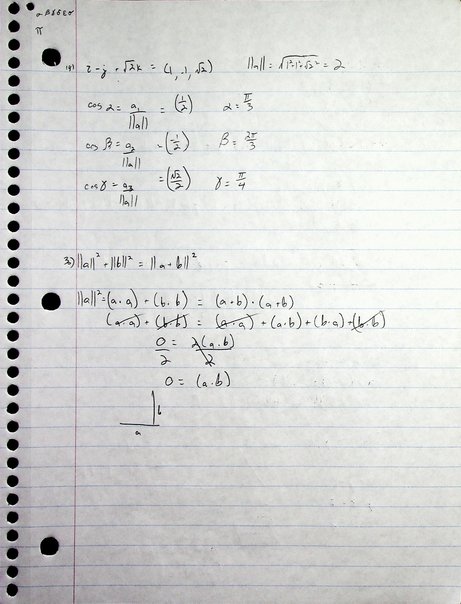 π
19) i - j + √2k = (1, -1, √2) ||a|| = √(1²+1²+√2²) = 2
cos α = a₁/||a|| = (1/2) α = π/3
cos β = a₂/||a|| = (-1/2) β = 2π/3
cos γ = a₃/||a|| = (√2/2) γ = π/4
||a||² + ||b||² = ||a + b||²
||a||² = (a · a) + (b · b) = (a + b) · (a + b)
(a · a) + (b · b) = (a · a) + (a · b) + (b · a) + (b · b)
0/2 = 2(a · b)/2
0 = (a · b)
b
a